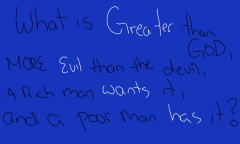 What is Greater than
GOD,
MORE Evil than the devil,
A Rich man wants it,
and a poor man has it?